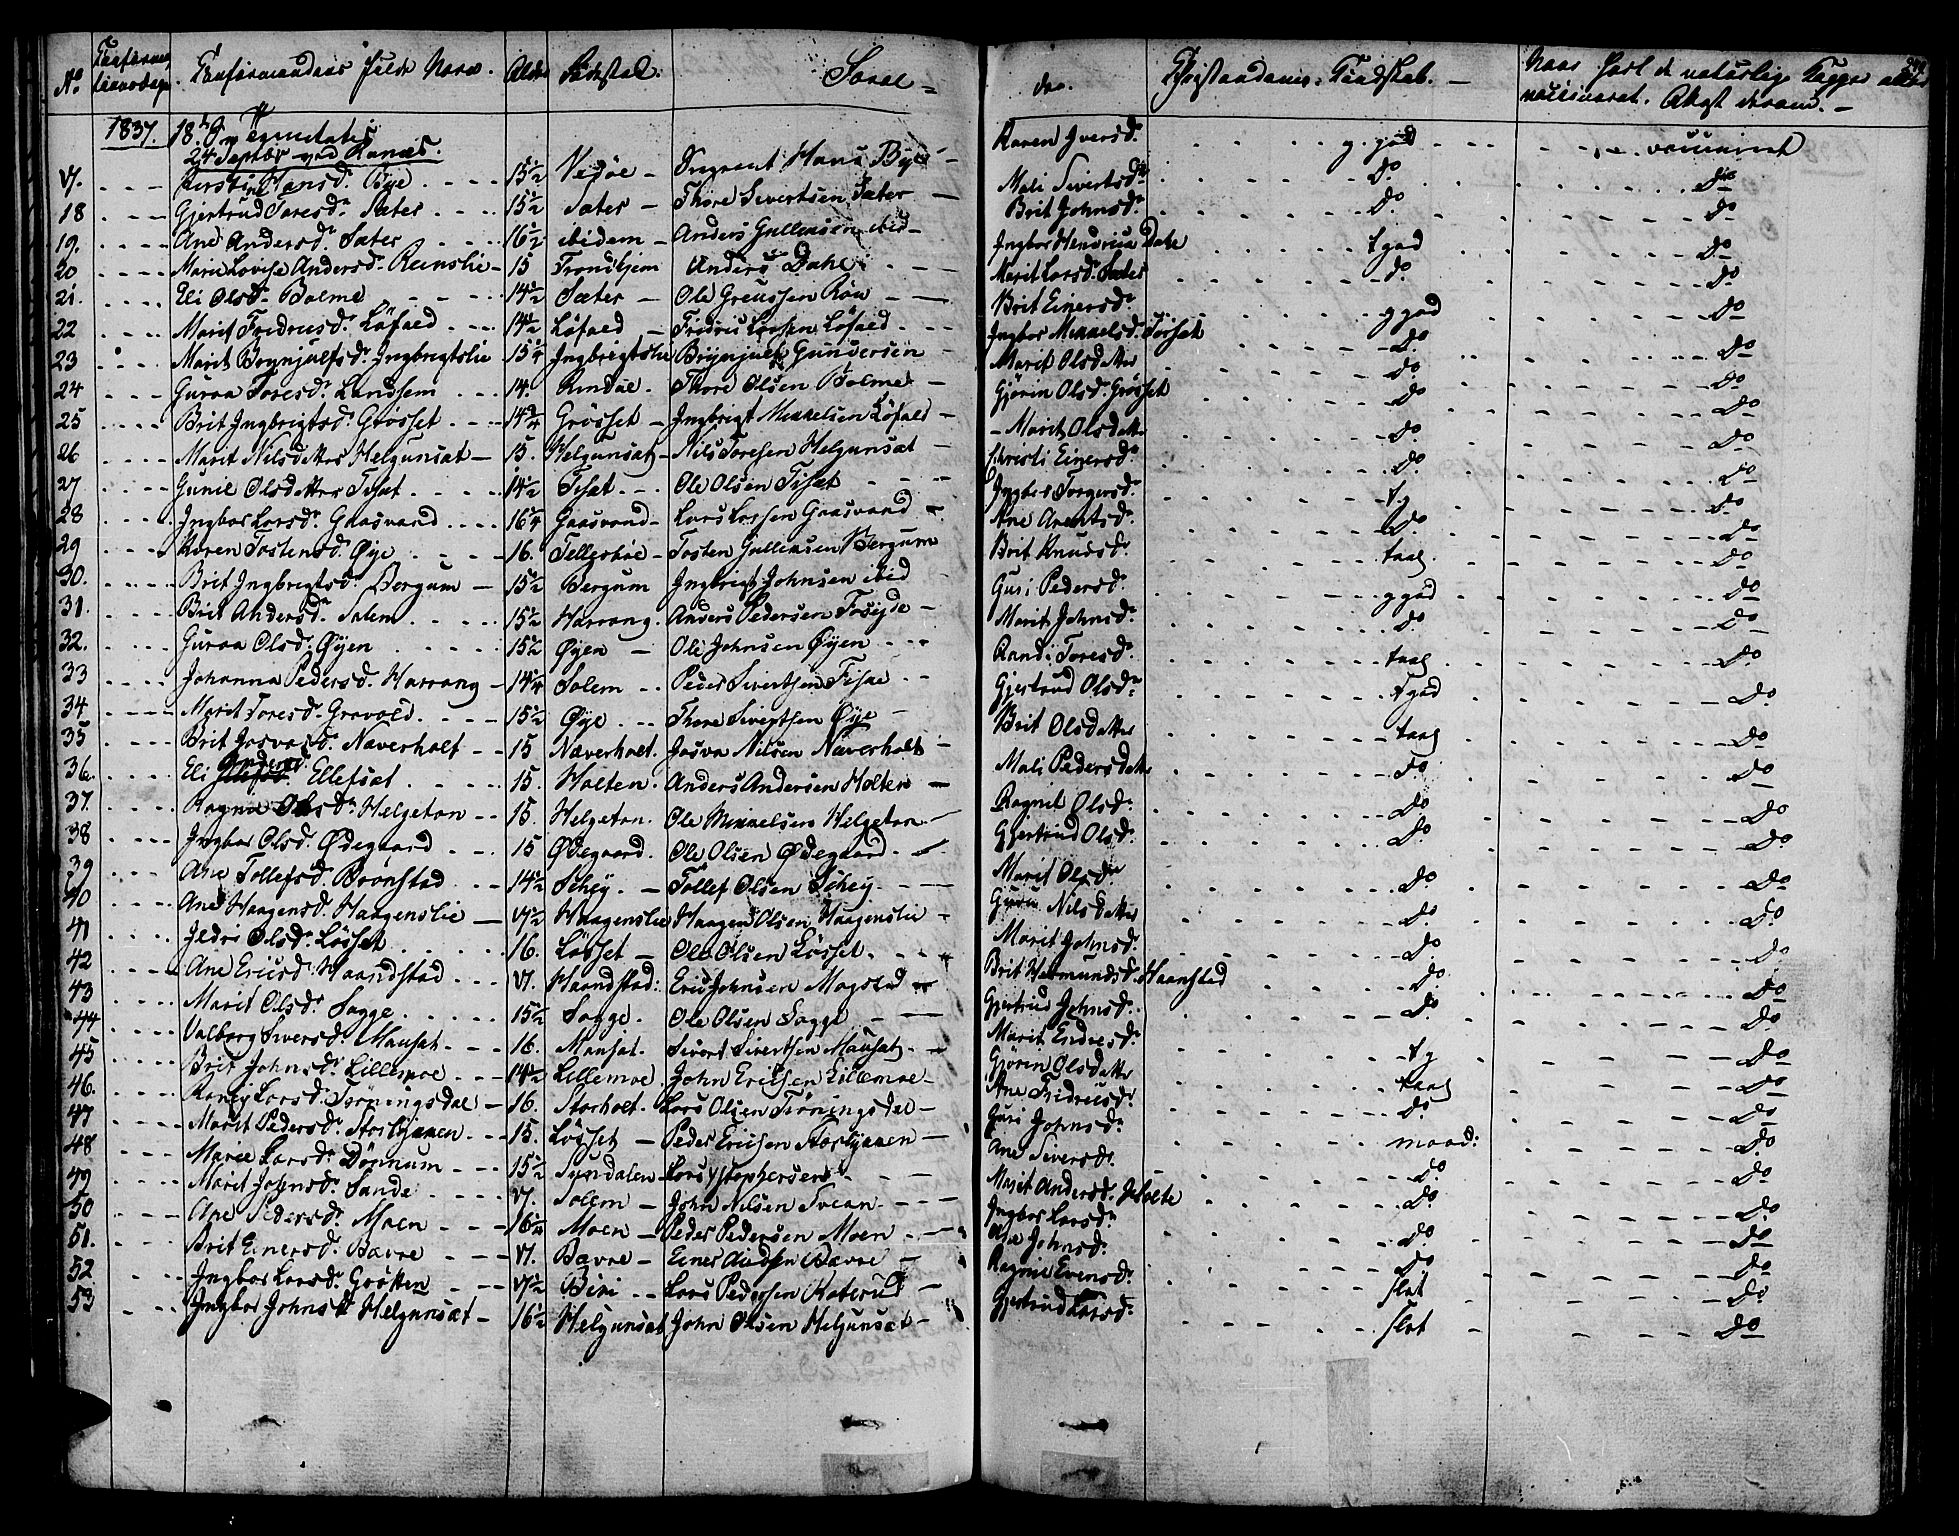 No Confirmationsdage. Confirmandens fulde Navn. Alder Fødested. Foræl- dre. Christendoms-Kundskab. Naar havt de naturlige Kopper eller vaccineret. Attest derom.
1837. 18de S. p Trinitatis
24 Septbr ved Ranæs.
17. Kirstin Hansdr. Bye 15½ Vedøe Sergeant Hans Bye Karen Iversdr. g. god vaccineret
18 Gjertrud Toresdr. Sæter 15½ Sæter Thore Sivertsen Sæter Mali Sivertsdr do do
19. Ane Andersdr. Sæter 16½ ibidem Anders Gullensen ibid Brit Johnsdr. do do
20 Marie Lovise Andersdr. Reinslie 15 Trondhjem Anders Dahl Ingbor Hendrica Dahl tgod do
21. Eli Olsdr. Bolme 14½ Sæter Ole Greussen Røv Marit Larsdr. Sæter do do
22 Marit Fredriksdr. Løfald 14½ Løfald Fredrik Larsen Løfald Brit Einersdr ggod do
23 Marit Brynjulfsdr. Ingbrigtslie 15¼ Ingbrigtslie Brynjulf Gundersen Ingbor Mikkelsdr. Torset do do
24 Guroa Toresdr. Landsem 14. Rindal Thore Olsen Bolme Marit Olsdatter do do
25 Brit Ingbrigtsdr. Grøsset 14¾ Grøsset Ingbrigt Mikkelsen Løfald Gjørin Olsdr. Grøsset do do
26 Marit Nilsdatter Helgunsæt 15. Helgunsæt Nils Toresen Helgunsæt Marit Olsdatter do do
27 Gunil Olsdatter Tiset 14½ Tisæt Ole Olsen Tisæt Christi Einersdr do do
28 Ingbor Larsdr. Gaasvand 16¼ Gaasvand Lars Larsen Gaasvand Ingber Torgersdr. tg do
29 Karen Tostensdr. Øye 16. Tellesbøe Tosten Gullensen Bergum Ane Arentsdr. do do
30. Brit Ingbrigtsdr. Bergum 15½ Bergum Ingbrigt Johnsen ibid Brit Knudsdr. taal. do
31. Brit Andersdr. Solem 15½ Harrang. Anders Pedersen Guri Pedersdr. ggod do
32. Guroa Olsdr. Øyen 15½ Øyen Ole Johnsen Øyen Marit Johnsdr. do do
33 Johanna Pedersdr. Harrang 14¼ Solem Peder Sivertsen Randi Toresdr. taal do
34 Marit Toresdr. Gravold 15½ Øye Thore Sivertsen Øye Gjertrud Olsdr. tgod do
35 Brit Josvasdr. Næverholt 15 Næverholt. Josva Nilsen Næverholt Brit Olsdatter taal do
36. Eli Andersdr Elletsæt 15. Holten. Anders Andersen Holten Mali Pedersdatter do do
37. Ragne Olsdr. Helgeton 15. Helgeton. Ole Mikkelsen Helgeton Ragnil Olsdr. do do
38 Ingbor Olsdr. Ødegaard 15 Ødegaard. Ole Olsen Ødegaard Gjertrud Olsdr. do do
39 Ane Tollefsdr. Brønstad 14½ Schey. Tollef Olsen Schey Marit Olsdr do do
40 Ane Haagensdr. Haagenslie 17½ Haagenslie Haagen Olsen Haagenslie Guru Nilsdatter do do
41 Ildri Olsdr. Løsset 16. Løsset Ole Olsen Løsset. Marit Johnsdr. do do
42 Ane Ericsdr. Haandstad 17. Haandstad: Eric Johnsen Mogstad Brit Hermundsdr. Haanstad do do
43 Marit Olsdr Sagge 15½ Sagge. Ole Olsen Sagge Gjertrud Johnsdr. do do
44 Valborg Siversdr. Mausæt 16. Mausæt. Sivert Sivertsen Mausæt Marit Endresdr. tg do
45 Brit Johnsdr. Lillemoe 14½ Lillemoe. John Ericsen Lillemoe Gjøren Olsdatter taal do
46. Larsdr. Tørningsdal 16. Storholt. Lars Olsen Tørningsdal Ane Fredriksdr. do do
47 Marit Pedersdr. Storlykken 15. Løsset Peder Ericsen Storlykken Guri Johnsdr. maad: do
48 Marie Larsdr. Dønnum 15½ Syndalen Lars Ane Siversdr. do do
49 Marit Johnsdr. Sande 17. Solem John Nilsen Svean Marit Andersdr. Holte do do
50 Ane Pedersdr. Moen 16¼ Moen Peder Pedersen Moen Ingbor Larsdr. do do
51. Brit Einersdr. Bævre 17. Bævre Einer Bævre Ane Johnsdr. do do
52 Ingbor Larsdr. Grøtten 17½ Biri Lars Pedersen Ragnil Evensdr. slet do
53 Ingbor Johnsdr Helgunsæt 16½ Helgunsæt John Olsen Helgunsæt Gjertrud Larsdr. slet do